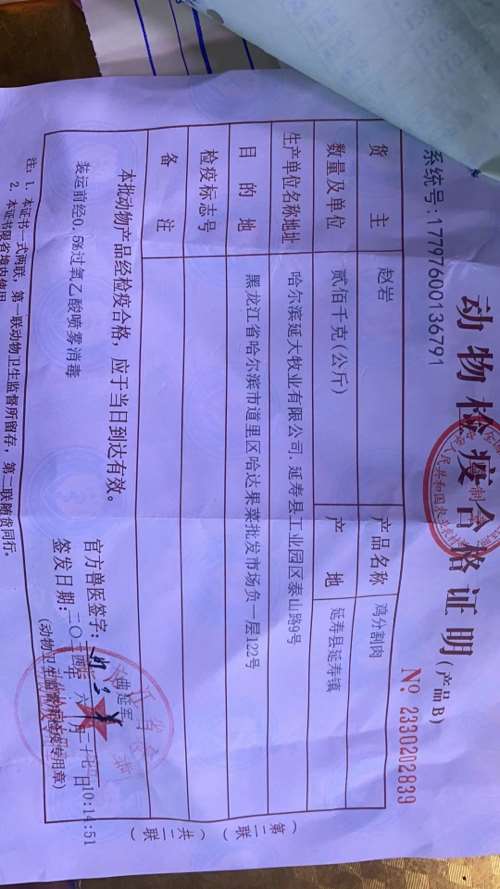 动物检疫合格证明(产品B)
系统号:17797600136791
№ 2330202839
货主 赵岩 产品名称 鸡分割肉
数量及单位 贰佰千克(公斤) 产地 延寿县延寿镇
生产单位名称地址 哈尔滨延大牧业有限公司,延寿县工业园区泰山路9号
目的地 黑龙江省哈尔滨市道里区哈达果菜批发市场负一层122号
检疫标志号
备注
本批动物产品经检疫合格,应于当日到达有效。
装运前经0.5%过氧乙酸喷雾消毒
官方兽医签字: 曲延军
签发日期:二〇二四年六月二十七日 10:14:51
(动物卫生监督所检疫专用章)
(第二联)
(共二联)
注:1. 本证书一式两联,第一联动物卫生监督所留存,第二联随货同行。
2. 本证书限省境内使用